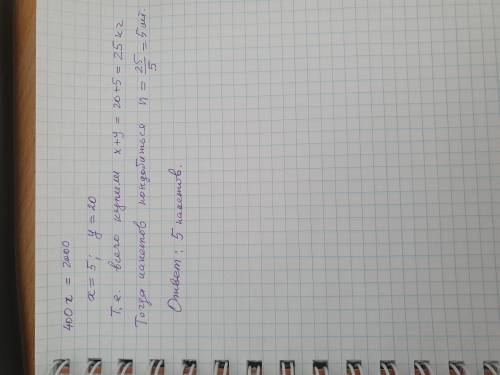 400 x = 2000
x = 5; y = 20
Т.е. всего купили x + y = 20 + 5 = 25 кг
Тогда пакетов пондобиться n = 25/5 = 5 шт.
Ответ: 5 пакетов.